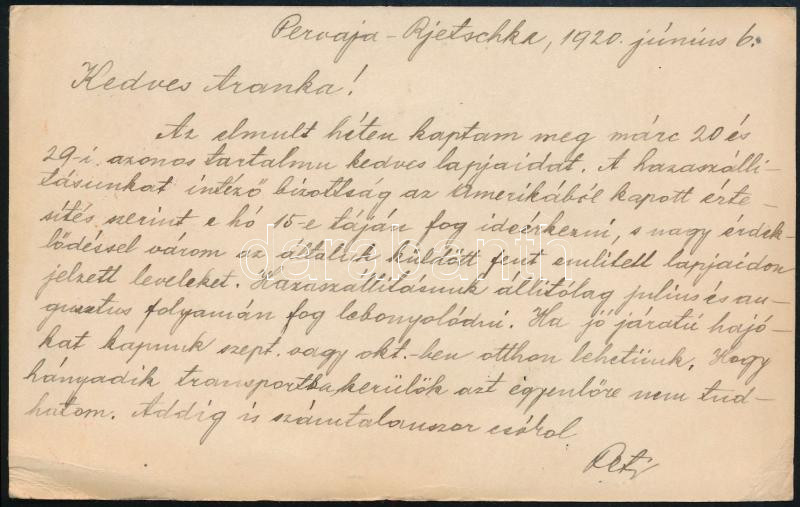 Pervaja-Rjetschka, 1920. június 6.
Kedves Aranka!
Az elmult héten kaptam meg márc 20 és
29-i. azonos tartalmu kedves lapjaidat. A hazaszálli-
tásunkat intéző bizottság az Amerikából kapott érte-
sítés szerint e hó 15-e táján fog ideérkezni, s nagy érdek-
lődéssel várom az általuk küldött fent emlitett lapjaidon
jelzett leveleket. Hazaszállitásunk állitólag julius és au-
gusztus folyamán fog lebonyolódni. Ha jó járatú hajó-
kat kapunk szept. vagy okt.-ben otthon lehetünk. Hogy
hányadik transportba kerülök azt egyenlőre nem tud-
hatom. Addig is számtalanszor csókol
darabanth